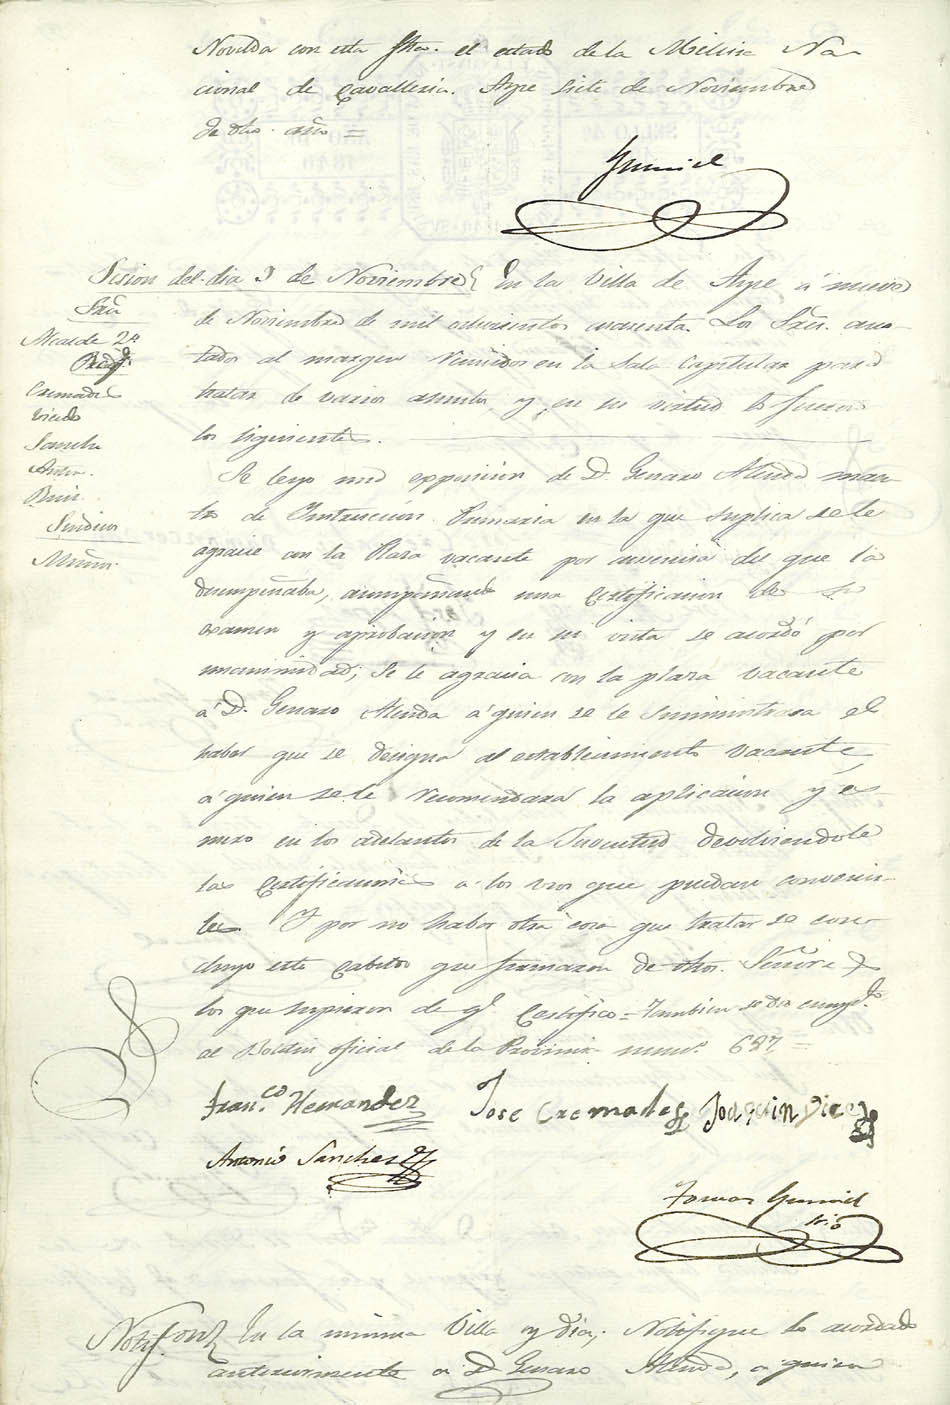 Novelda con esta fha. el estado de la Milicia Na-
cional de Cavalleria. Aspe siete de Noviembre
de dho. año =
Gumiel
Sesion del dia 9 de Noviembre
Sres.
Alcalde 2º
Cremades
Vicedo
Sanchez
Anton.
Ruiz.
Sindico
En la Villa de Aspe á nueve
de Noviembre de mil ochocientos cuarenta. Los Sres. ano-
tados al margen reunidos en la Sala Capitular para
tratar de varios asuntos, y en su virtud lo fueron
los siguientes.
Se leyo una exposicion de D. Genaro Alenda maes-
tro de Instruccion Primaria en la que suplica se le
agracie con la Plaza vacante por ausencia del que la
desempeñaba, acompañando una Certificacion de su
examen y aprobacion y en su vista se acordó por
unanimidad; Se le agracia con la plaza vacante
á D. Genaro Alenda á quien se le suministrara el
haber que se designa al establecimiento vacante,
á quien se le recomendara la aplicacion y es-
mero en los adelantos de la Juventud devolviendole
las Certificaciones a los usos que puedan convenir-
le. Y por no haber otra cosa que tratar se conc-
luyo este Cabildo que firmaron de dhos. Señores
los que supieron de q. Certifico = Tambien se dio cumpto.
al Boletin oficial de la Provincia numo. 687 =
Franco. Hernandez Jose Cremades Joaquin
Antonio Sanchez
Tomas Gumiel
Srio
Notificon. En la misma Villa y dia; Notifique lo acordado
anteriormente a D. Genaro Alenda, a quien